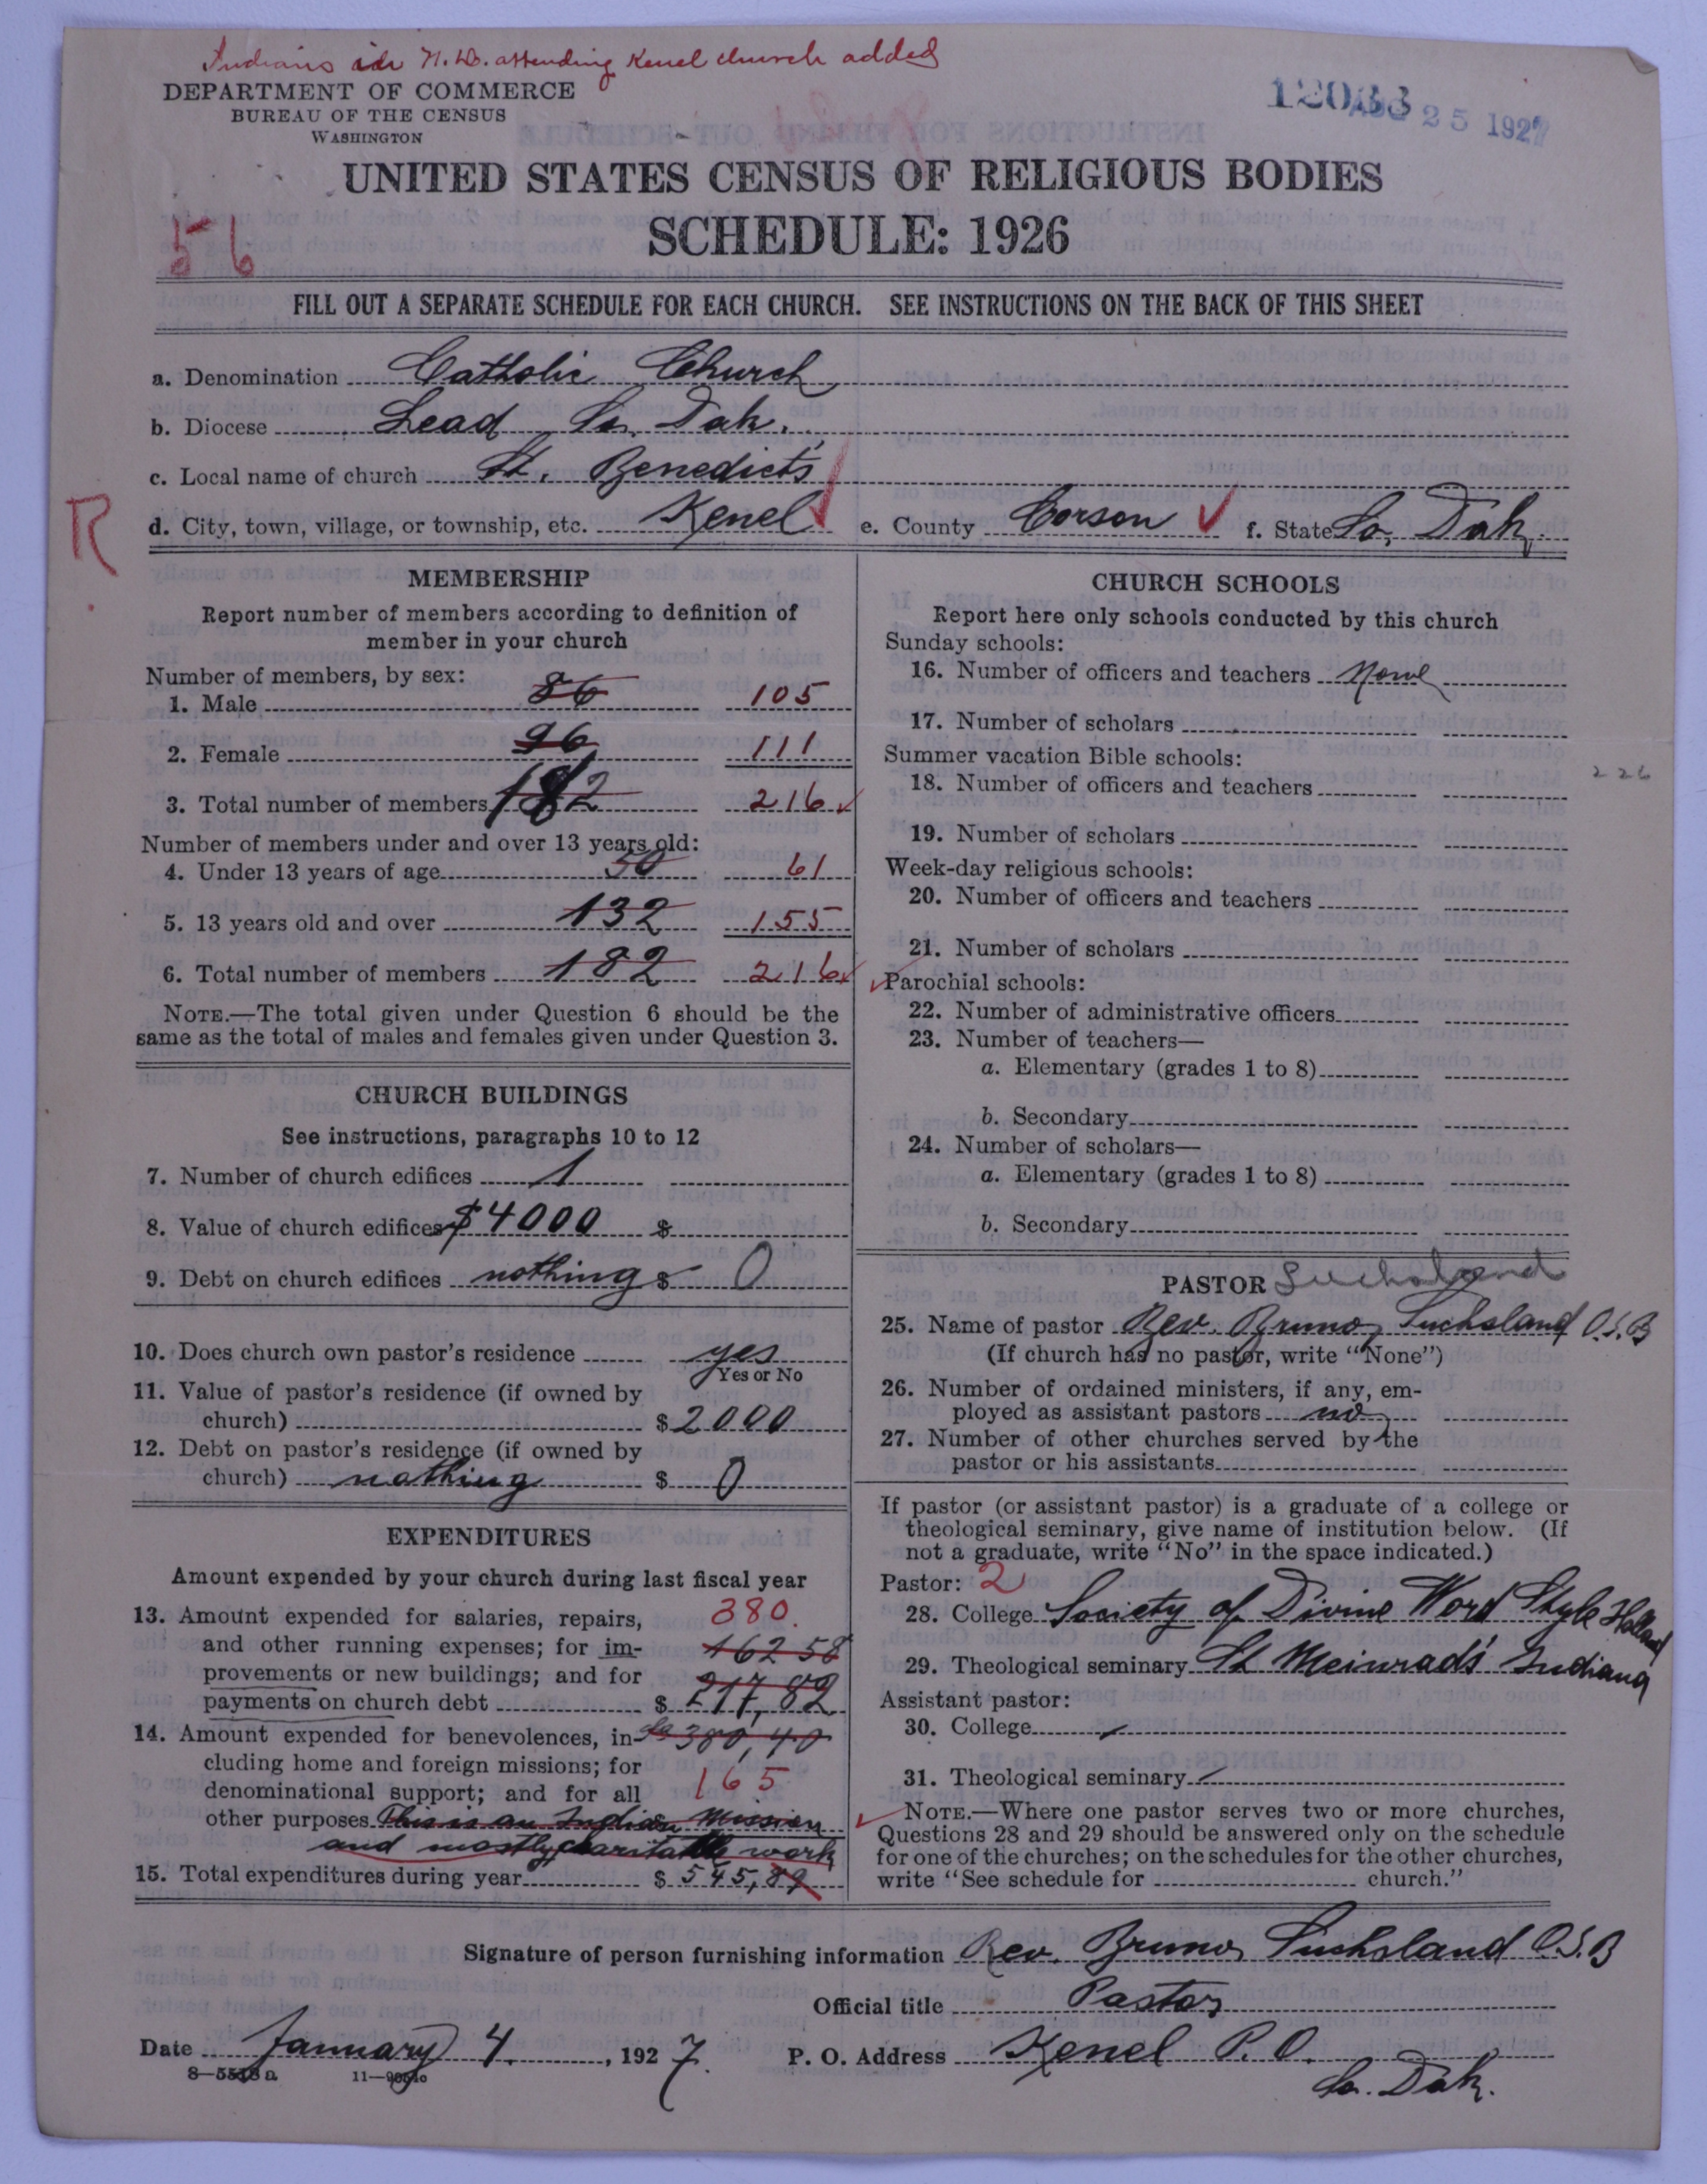 Indians in N. D. attending Kenel church added
DEPARTMENT OF COMMERCE
BUREAU OF THE CENSUS
WASHINGTON
12033
AUG 25 1927
UNITED STATES CENSUS OF RELIGIOUS BODIES
SCHEDULE: 1926
56
FILL OUT A SEPARATE SCHEDULE FOR EACH CHURCH. SEE INSTRUCTIONS ON THE BACK OF THIS SHEET
a. Denomination Catholic Church
b. Diocese Lead So. Dak.
c. Local name of church St. Benedicts
R
d. City, town, village, or township, etc. Kenel e. County Corson f. State So. Dak.
MEMBERSHIP
Report number of members according to definition of
member in your church
Number of members, by sex:
1. Male 86 105
2. Female 96 111
3. Total number of members 182 216
Number of members under and over 13 years old:
4. Under 13 years of age 50 61
5. 13 years old and over 132 155
6. Total number of members 182 216
NOTE.—The total given under Question 6 should be the
same as the total of males and females given under Question 3.
CHURCH BUILDINGS
See instructions, paragraphs 10 to 12
7. Number of church edifices 1
8. Value of church edifices $4000 $
9. Debt on church edifices nothing $ 0
10. Does church own pastor's residence yes
Yes or No
11. Value of pastor's residence (if owned by
church) $2000
12. Debt on pastor's residence (if owned by
church) nothing $ 0
EXPENDITURES
Amount expended by your church during last fiscal year
13. Amount expended for salaries, repairs, 380.
and other running expenses; for im- 162 58
provements or new buildings; and for
payments on church debt $ 217,82
14. Amount expended for benevolences, in- 380,40
cluding home and foreign missions; for
denominational support; and for all 165
other purposes This is an Indian Mission
and mostly charitable work
15. Total expenditures during year $ 545,89
CHURCH SCHOOLS
Report here only schools conducted by this church
Sunday schools:
16. Number of officers and teachers None
17. Number of scholars
Summer vacation Bible schools:
18. Number of officers and teachers
226
19. Number of scholars
Week-day religious schools:
20. Number of officers and teachers
21. Number of scholars
Parochial schools:
22. Number of administrative officers
23. Number of teachers—
a. Elementary (grades 1 to 8)
b. Secondary
24. Number of scholars—
a. Elementary (grades 1 to 8)
b. Secondary
PASTOR Suchsland
25. Name of pastor Rev. Bruno Suchsland O.S.B
(If church has no pastor, write "None")
26. Number of ordained ministers, if any, em-
ployed as assistant pastors no
27. Number of other churches served by the
pastor or his assistants
If pastor (or assistant pastor) is a graduate of a college or
theological seminary, give name of institution below. (If
not a graduate, write "No" in the space indicated.)
Pastor: 2
28. College Society of Divine Word Style Holland
29. Theological seminary St Meinrad's Indiana
Assistant pastor:
30. College
31. Theological seminary
NOTE.—Where one pastor serves two or more churches,
Questions 28 and 29 should be answered only on the schedule
for one of the churches; on the schedules for the other churches,
write "See schedule for church."
Signature of person furnishing information Rev. Bruno Suchsland O.S.B
Official title Pastor
Date January 4, 1927. P. O. Address Kenel P.O.
So. Dak.